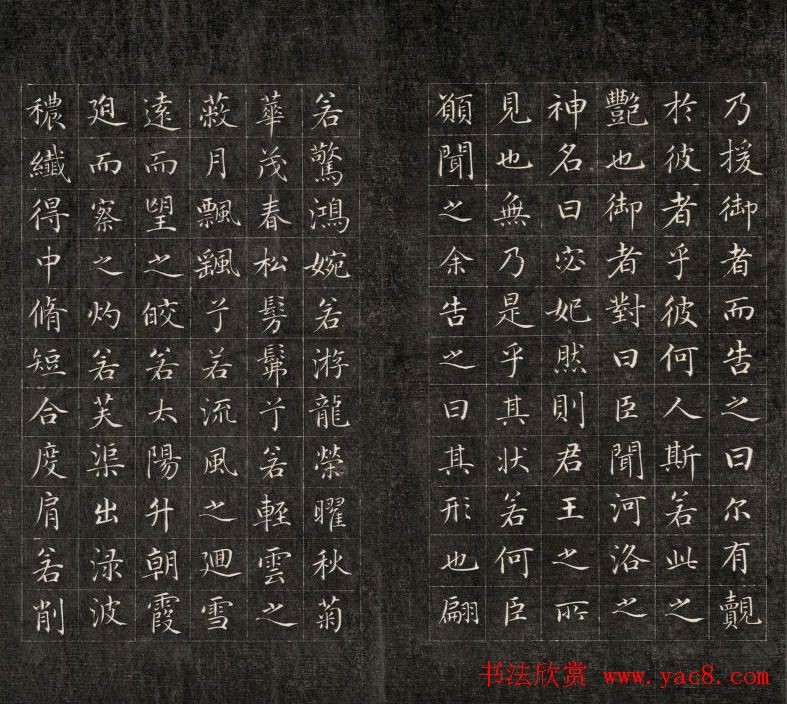 乃援御者而告之曰尔有覿
於彼者乎彼何人斯若此之
豔也御者對曰臣聞河洛之
神名曰宓妃然則君王之所
見也無乃是乎其状若何臣
願聞之余告之曰其形也翩
若驚鴻婉若游龍榮曜秋菊
華茂春松髣髴兮若輕雲之
蔽月飄颻兮若流風之迴雪
遠而望之皎若太陽升朝霞
迫而察之灼若芙渠出渌波
穠纖得中脩短合度肩若削
书法欣赏 www.yac8.com